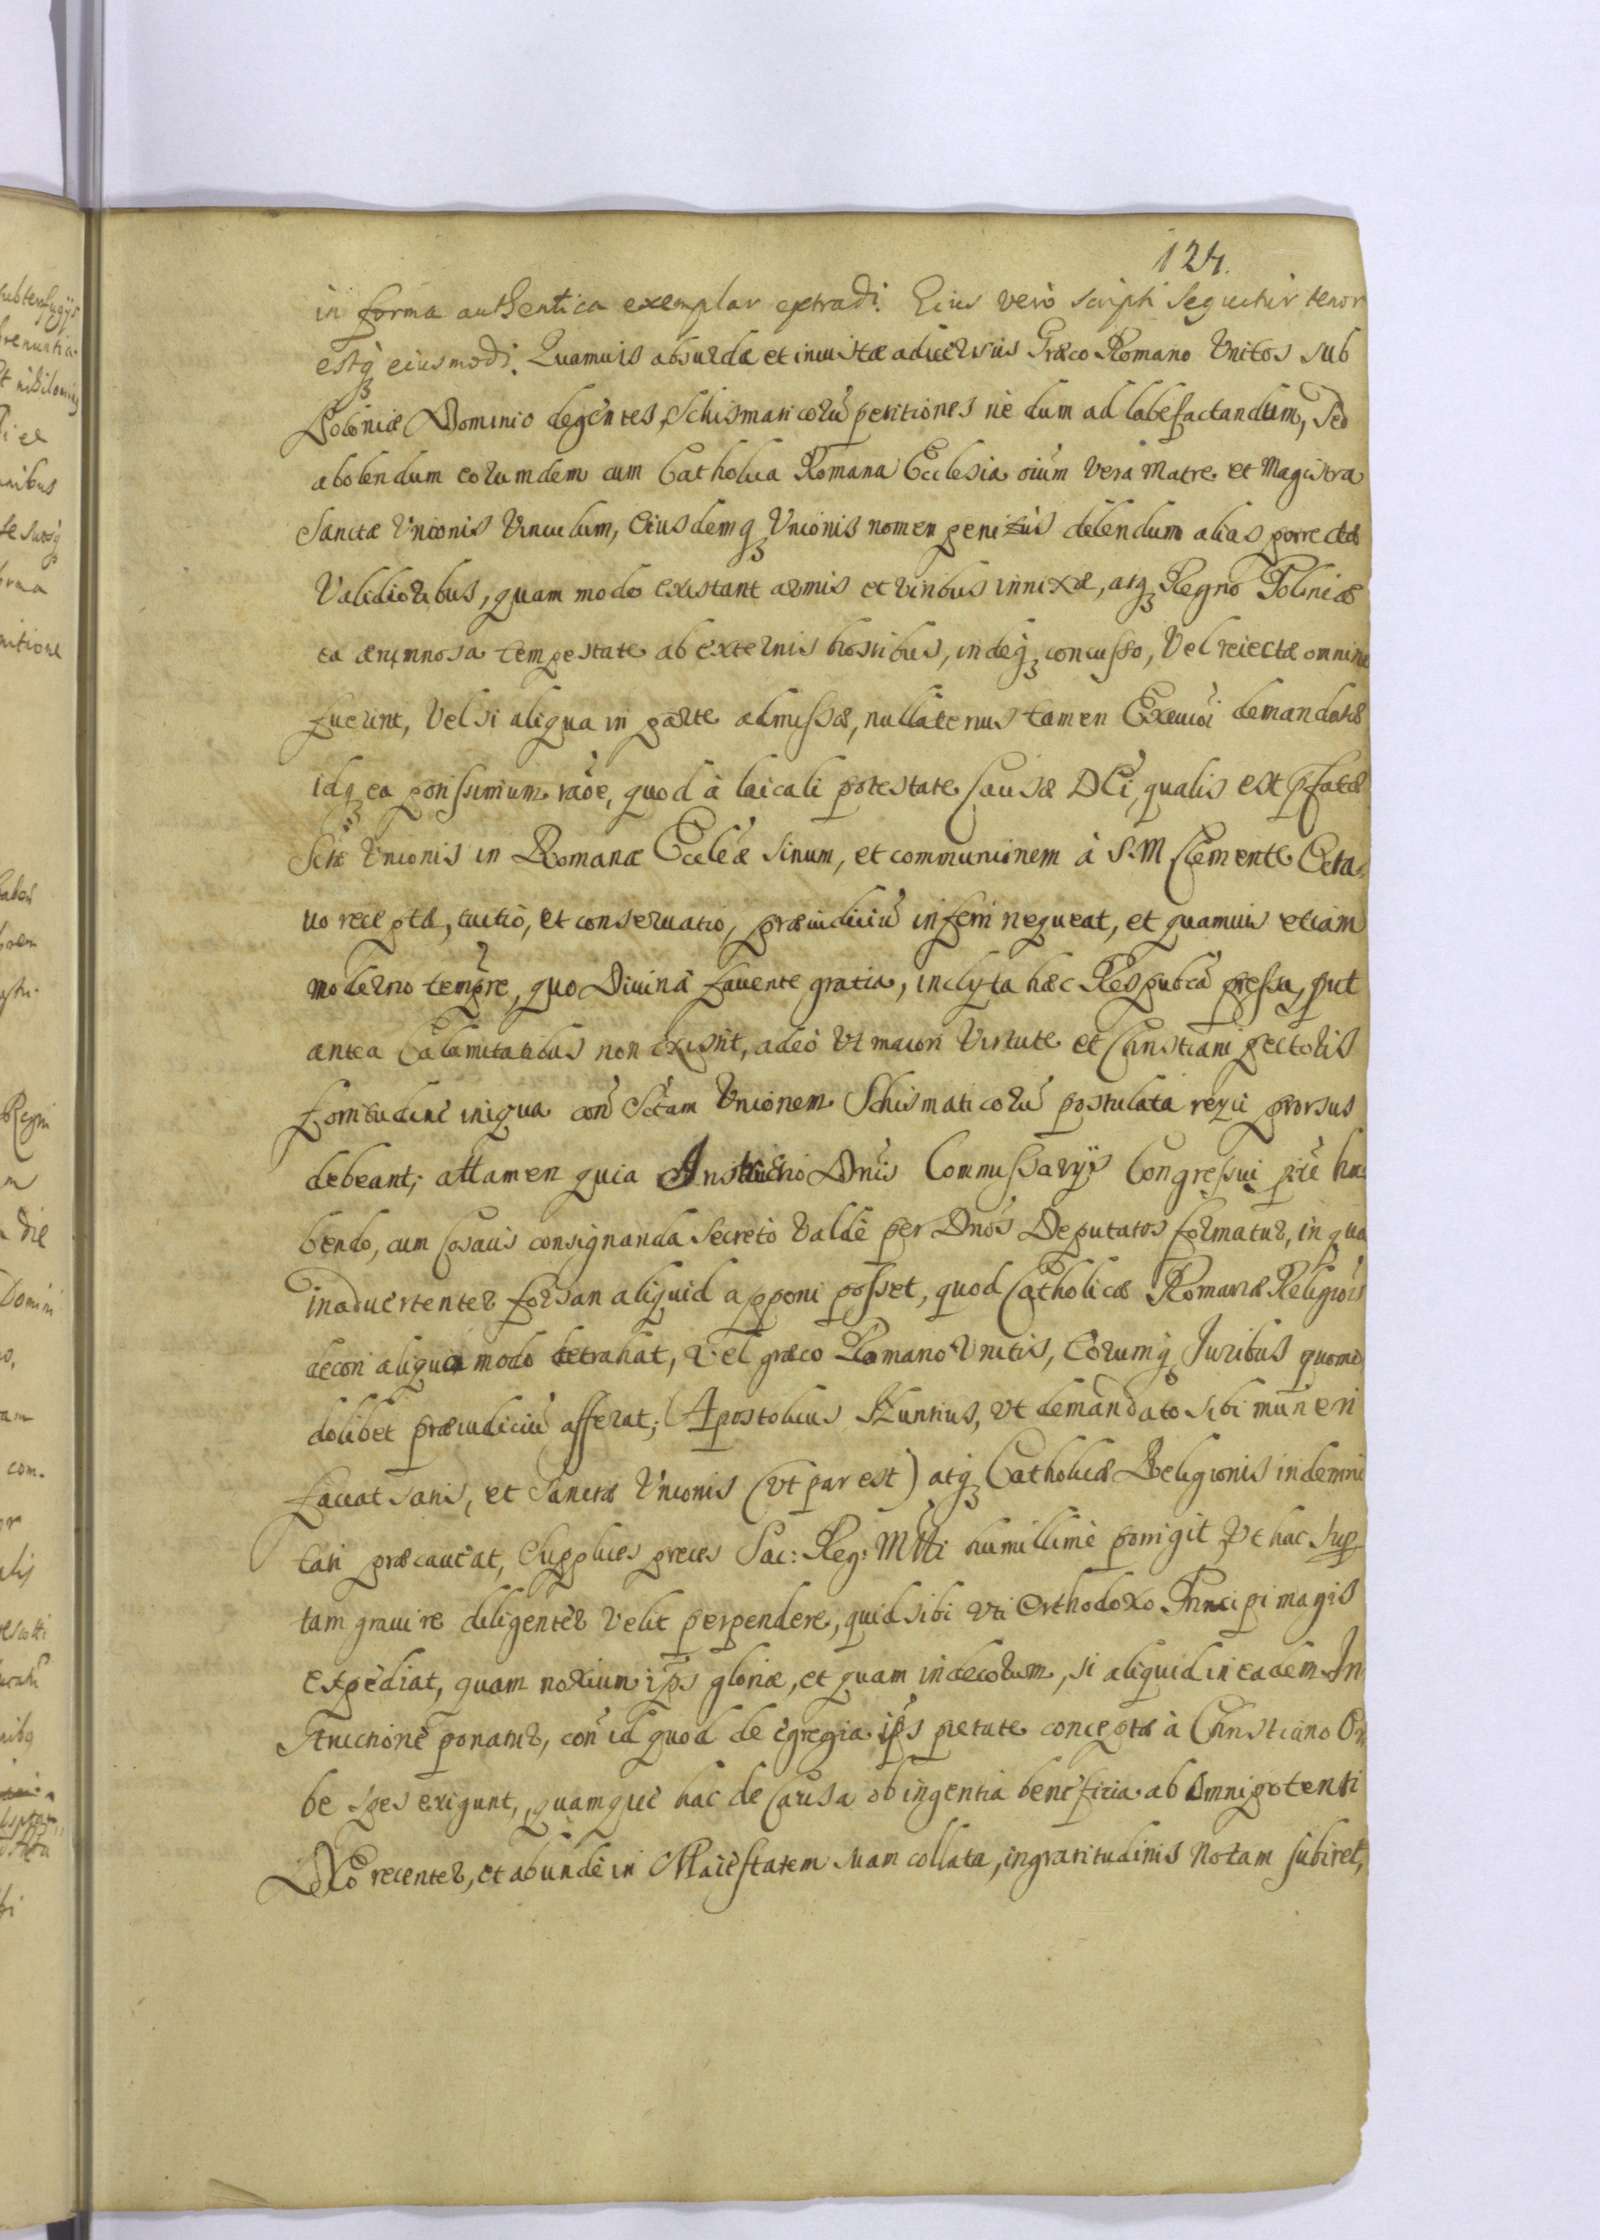 124.
in forma authentica exemplar extradi. Eius vero scripti sequitur tenor
estq; eiusmodi. Quamuis absurdæ et iniustæ aduersus Græco Romano Vnitos sub
Poloniæ Dominio degentes, Schismaticorũ petitiones nè dum ad labefactandum, sed
abolendum eorumdem cum Catholica Romana Ecclesia oium vera Matre et Magistra
Sanctæ Vnionis Vinculum, Eiusdemq; Vnionis nomen penitùs delendum alias porrectæ
Validioribus, quam modo existant armis et viribus innixæ, atq; Regno Poloniæ
ea ærumnosa tempestate ab externis hostibus, indeq; concusso, Vel reiectæ omnino
fuerint, Vel si aliqua in parte admissæ, nullatenus tamen Execuõi demandatæ
idq; ea potissimum raõe, quod à laicali potestate Causæ DEi, qualis est pfatæ
Sctæ Vnionis in Romanæ Eccleæ sinum, et communionem à S.M Clemente Octa-
uo receptæ, tuitio, et conseruatio, præiudiciũ inferri nequeat, et quamuis etiam
moderno tempre, quo Diuinâ fauente gratia, inclyta hæc Respubca pressa, put
antea Calamitatibus non existit, adeò vt maiori Virtute et Christiani pectoris
fortitudine iniqua con Sctam Vnionem Schismaticorũ postulata reyci prorsus
debeant; attamen quia Instructio Dnis Commissarijs Congressui pte ha-
bendo, cum Cosacis consignanda secretò valdè per Dnos Deputatos formatur, in qua
inaduertenter forsan aliquid apponi posset, quod Catholicæ Romanæ Religiois
decori aliquo modo detrahat, vel græco Romano Vnitis, Eorumq; Juribus quomo
dolibet præiudiciũ afferat; Apostolicus Nuntius, vt demandato sibi muneri
faciat satis, et Sanctæ Vnionis (vt par est) atq; Catholicæ Religionis indemni
tati præcaueat, Supplices preces Sac: Reg: Mtti humillimè porrigit vt hac sup
tam graui re diligenter velit perpendere, quid sibi vti Orthodoxo Principi magis
expediat, quam noxium ips gloriæ, et quam indecorum, si aliquid in eadem In
structione ponatur, con id quod de egregia ips pietate conceptæ à Christiano Or
be spes exigunt, quamque hac de Causa ob ingentia beneficia ab Omnipotenti
DEo recenter, et abundè in Maiestatem suam collata, ingratitudinis notam subiret,